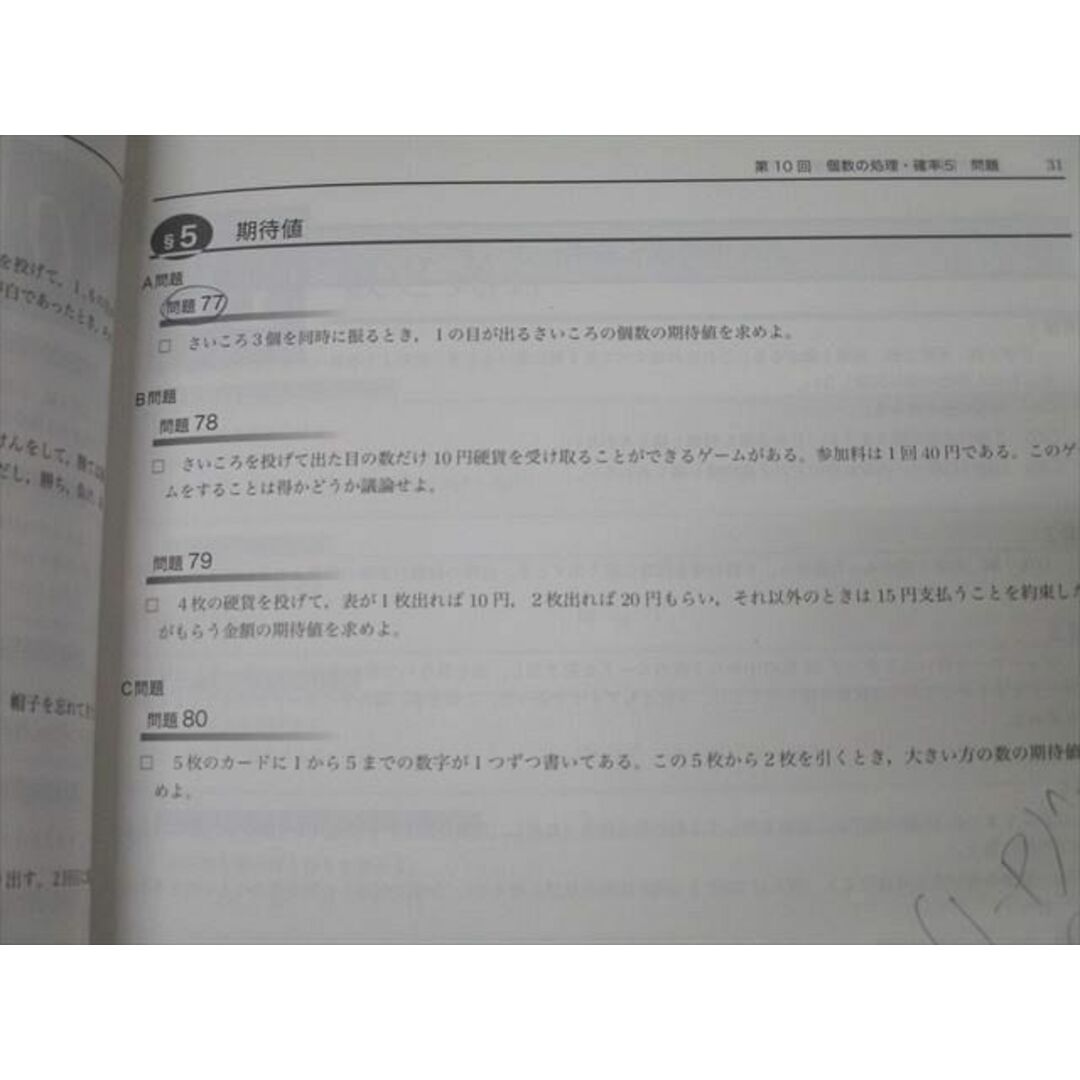 第10回 個数の処理・確率(5) 問題 31
§5 期待値
A問題
問題77
□ さいころ3個を同時に振るとき，1の目が出るさいころの個数の期待値を求めよ。
B問題
問題78
□ さいころを投げて出た目の数だけ10円硬貨を受け取ることができるゲームがある。参加料は1回40円である。このゲ
ムをすることは得かどうか議論せよ。
問題79
□ 4枚の硬貨を投げて，表が1枚出れば10円，2枚出れば20円もらい，それ以外のときは15円支払うことを約束した
がもらう金額の期待値を求めよ。
C問題
問題80
□ 5枚のカードに1から5までの数字が1つずつ書いてある。この5枚から2枚を引くとき，大きい方の数の期待値
めよ。
を投げて，1，6の
白であったとき，
けんをして，勝て
だし，勝ち，負け
帽子を忘れて
出す。2回
(1-P)